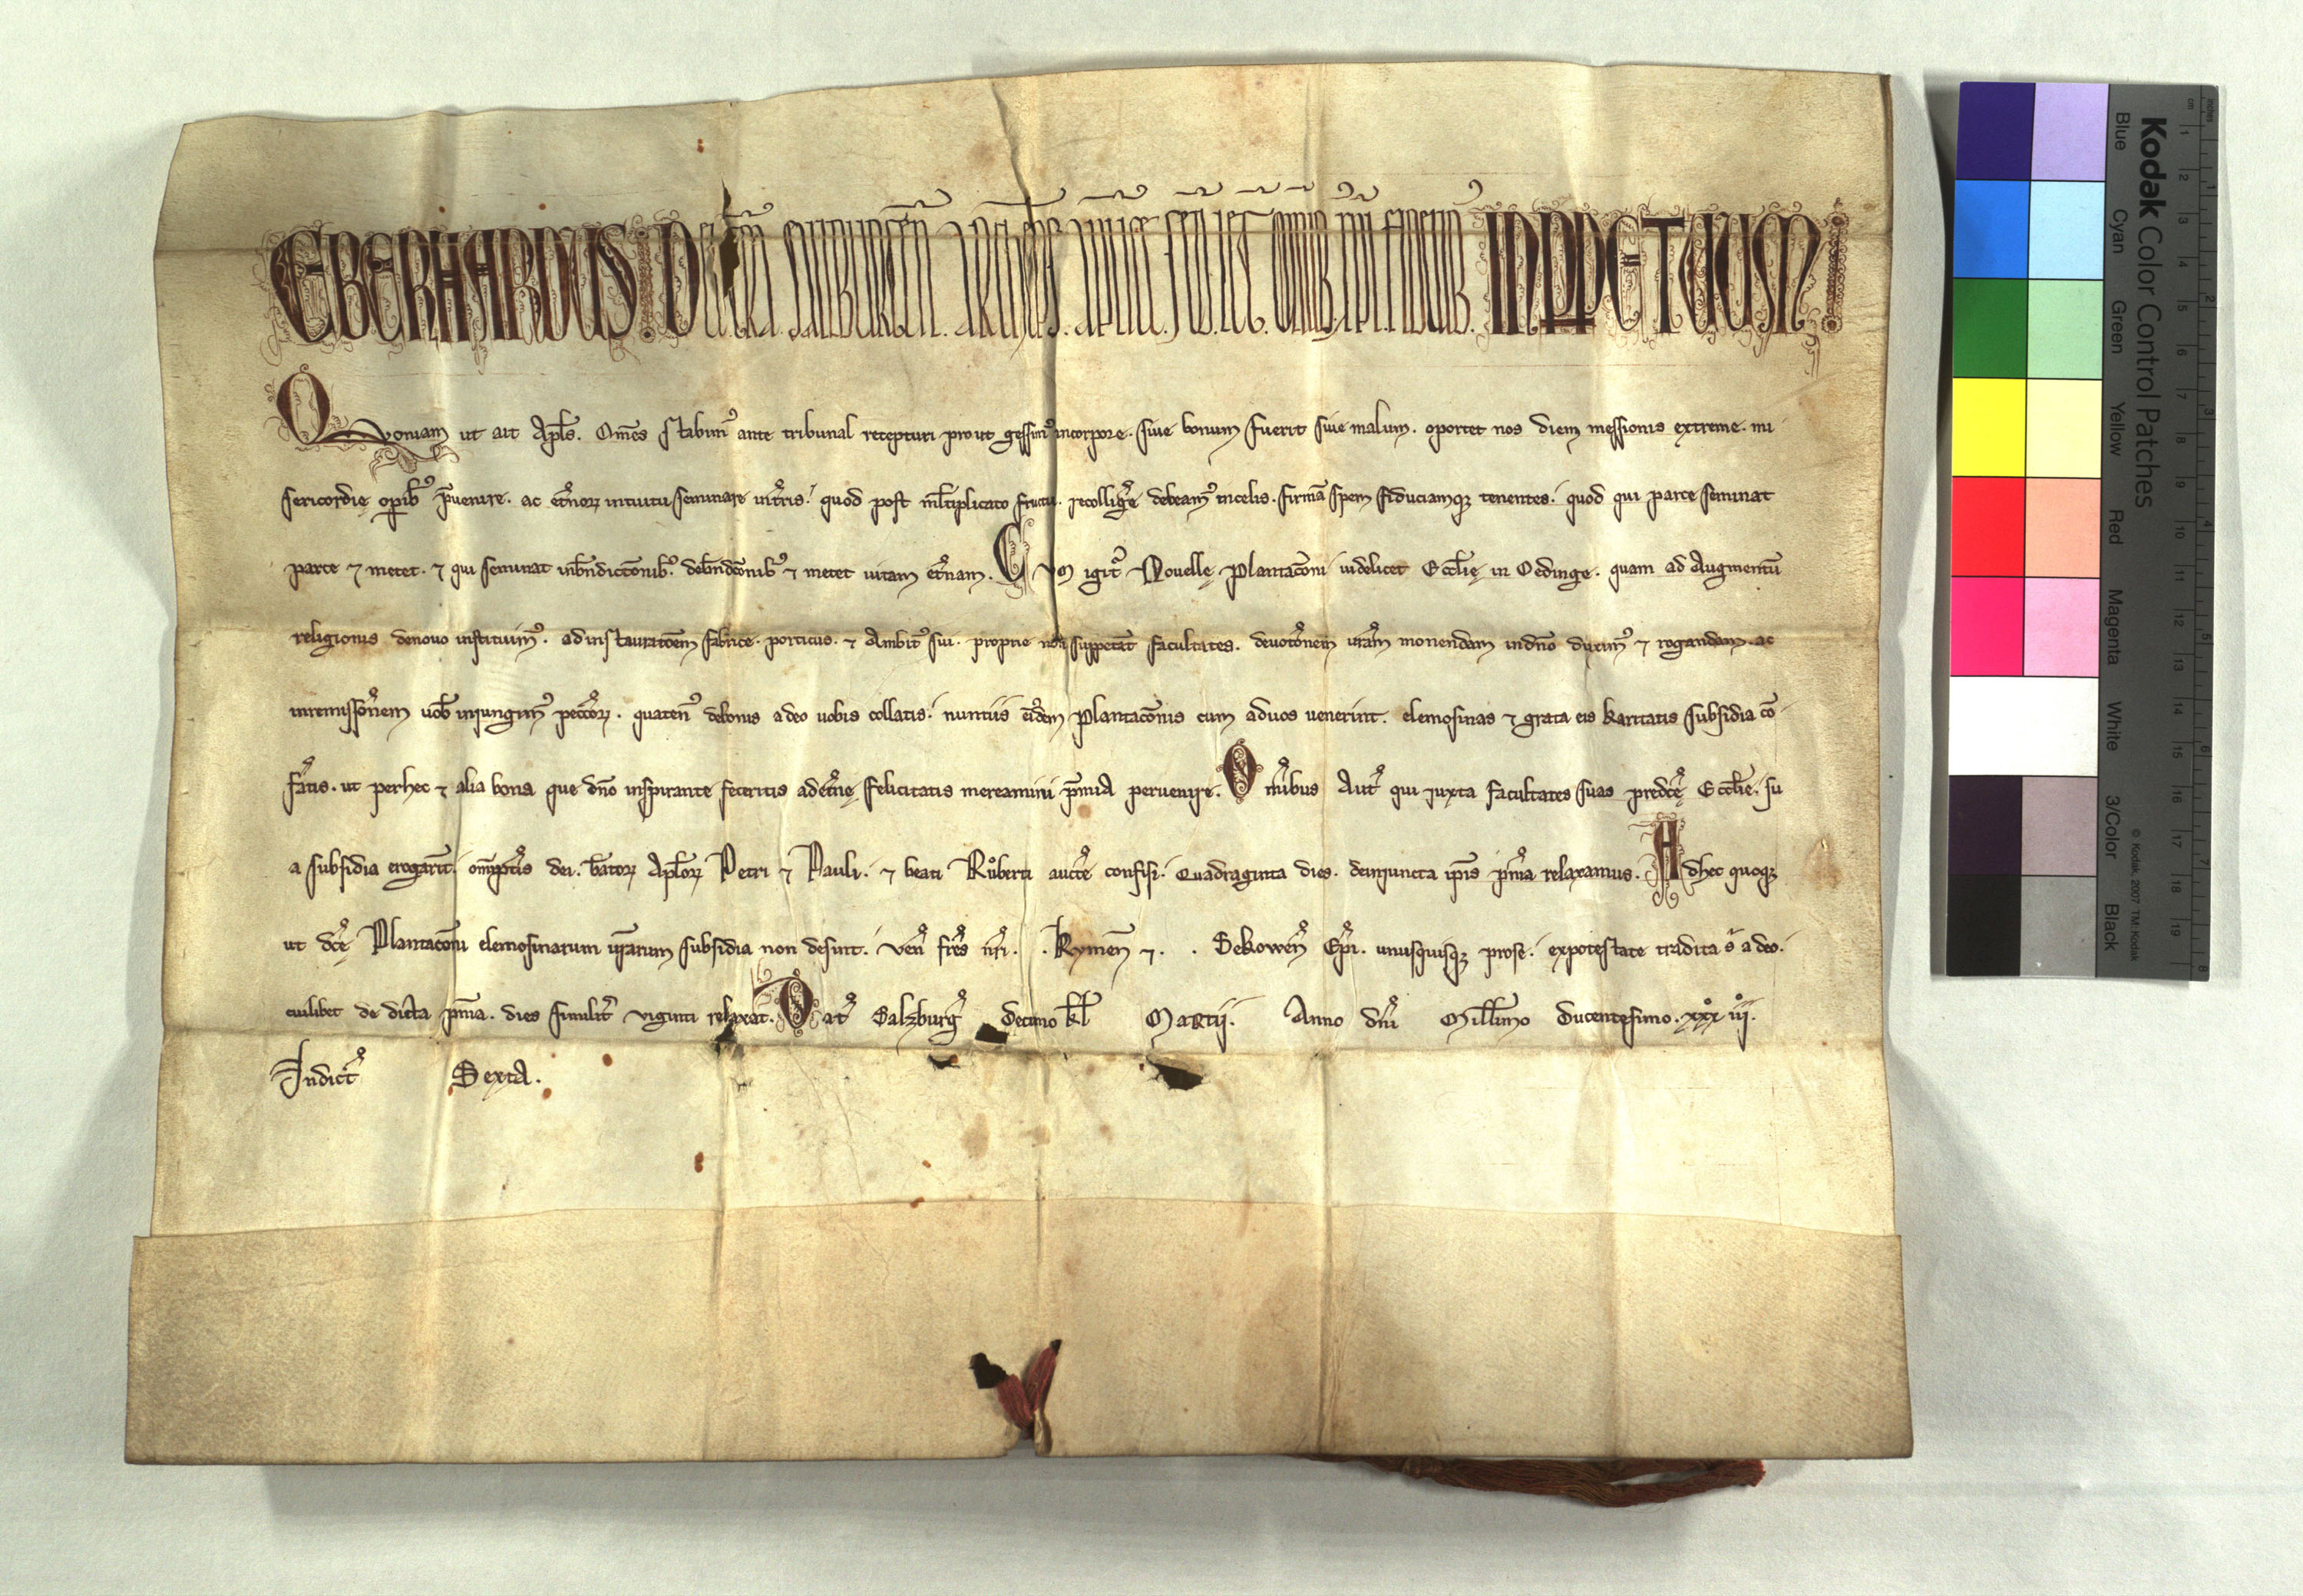 EBERHARDUS D̅i gr̅a. SALZBURGEN̅. ARCHIEP̅S. AP̅LICE. SED̅. LEG̅. OMNIB. XP̅I. FIDELIB. IN PP̅ETUUM
Quoniam ut ait Apl̅s. Om̅s stabim᷒ ante tribunal recepturi prout gessim᷒ incorpore. siue bonum fuerit siue malum. oportet nos diem messionis extreme. mi
sericordię op̅ib᷒ p̅uenire. ac et̅noꝝ intuitu seminare int̅ris. quod post ml̅tiplicato fructu. recollig̅e debeam᷒ incelis. firma̅ spem fiduciamqꝫ tenentes. quod qui parce seminat
parce ⁊ metet. ⁊ qui seminat inb̅ndictio̅nib᷒. deb̅ndictio̅nib᷒ ⁊ metet uitam et̅nam. Cum igit̅ Nouellę Plantaco̅ni uidelicet Eccl̅ię in Oedinge. quam ad Augmentu̅
religionis denouo instituim᷒. adinstauratio̅em fabrice. porticus. ⁊ Ambit᷒ sui. proprie non suppeta̅t facultates. deuoto̅nem ur̅am monendam indn̅o duxim᷒ ⁊ rogandam. ac
inremissio̅nem uob̅ iniungim᷒ pecc̅oꝝ. quaten᷒ debonis adeo uobis collatis. nuntiis ei̅dem Plantaco̅nis cum aduos uenerint. elemosinas ⁊ grata eis karitatis subsidia co̅
f̅atis. ut perhec ⁊ alia bona que dn̅o inspirante feceritis adet̅nę felicitatis mereamini p̅mia peruenire. Om̅ibus Aut̅ qui iuxta facultates suas predc̅ę Eccl̅ie. su
a subsidia erogari̅t. omp̅tis dei. b̅atoꝝ Apl̅oꝝ Petri ⁊ Pauli. ⁊ beati Růberti auct̅e confisi. Quadraginta dies. deiniuncta ip̅is p̅nia relaxamus. Adhec quoqꝫ
ut dc̅ę Plantaco̅ni elemosinarum ur̅arum subsidia non desint. Ven̅ fr̅es n̅ri. . Kymen̅ ⁊. . Sekowen̅ Ep̅i. unusquisqꝫ prose. expotestate tradita s̅ adeo.
cuilibet de dicta p̅nia. dies similit̅ viginti relaxa̅t. Dat̅ Salzburg̅ decimo kl̅ Martij. Anno dn̅i Mill̅imo Ducentesimo. xxx iij.
Indict̅ Sexta.
Kodak Color Control Patches
Blue Cyan Green Yellow Red Magenta White 3/Color Black
© Kodak, 2007 TM: Kodak
inches 1 2 3 4 5 6 7 8
cm 1 2 3 4 5 6 7 8 9 10 11 12 13 14 15 16 17 18 19